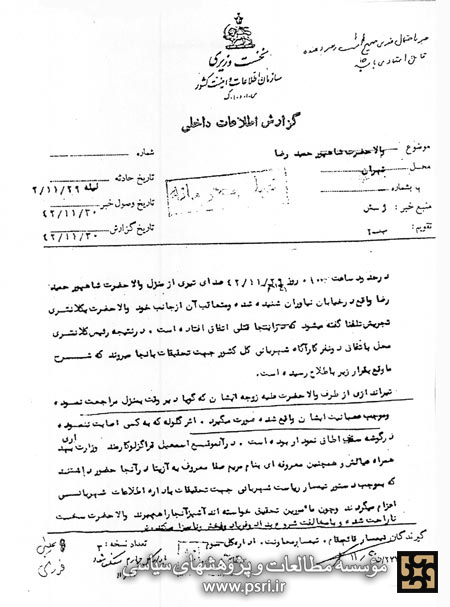 نخست وزیری
سازمان اطلاعات و امنیت کشور
س.ا.و.ا.ک
گزارش اطلاعات داخلی
موضوع والا حضرت شاهپور حمید رضا
شماره
محل تهران
تاریخ حادثه لیله ۲/۱۱/۲۹
به شماره
تاریخ وصول خبر ۴۲/۱۱/۳۰
منبع خبر:
تاریخ گزارش ۴۲/۱۱/۳۰
تقویم:
خیلی محرمانه
در حدود ساعت روز ۴۲/۱۱/ صدای تیری از منزل والا حضرت شاهپور حمید
رضا واقع در خیابان نیاوران شنیده شده و متعاقب آن از جانب خود والا حضرت بکلانتری
تجریش تلفنا گفته میشود که در اینجا قتلی اتفاق افتاده است . در نتیجه رئیس کلانتری
محل باتفاق دونفر کارآگاه شهربانی کل کشور جهت تحقیقات بآنجا میروند که شرح
ماوقع بقرار زیر باطلاع رسیده است .
تیراندازی از طرف والا حضرت علیه زوجه ایشان که گویا دیر وقت بمنزل مراجعت نموده
و موجب عصبانیت ایشان واقع شده صورت میگیرد . اثر گلوله که به کسی اصابت ننموده
در گوشه سقف اطاق نمودار بوده است . در آنموقع اسمعیل قراگزلو کارمند وزارت بهداری
همراه عیالش و همچنین معروفه ای بنام مریم صفا معروف به آزیتا در آنجا حضور داشتند
که بموجب دستور تیمسار ریاست شهربانی جهت تحقیقات باداره اطلاعات شهربانی
اعزام میگردند و چون مامورین تحقیق خواسته اند آنها را همراه ببرند والا حضرت سخت
ناراحت شده و با مخالفت شروع بداد و فریاد و فحش و ناسزا میکنند
گیرندگان تیمسار قائم مقام . تیمسار معاونت . اداره کل سوم
تعداد نسخه : ۳
موسسه مطالعات و پژوهشهای سیاسی
www.psri.ir